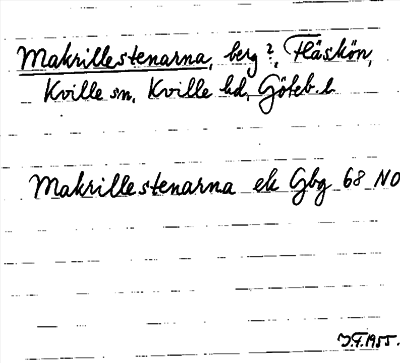 Makrillestenarna, berg?, Fläskön,
Kville sn, Kville hd, Göteb. l.
Makrillestenarna ek Gbg 68 NO
J.F. 1955.